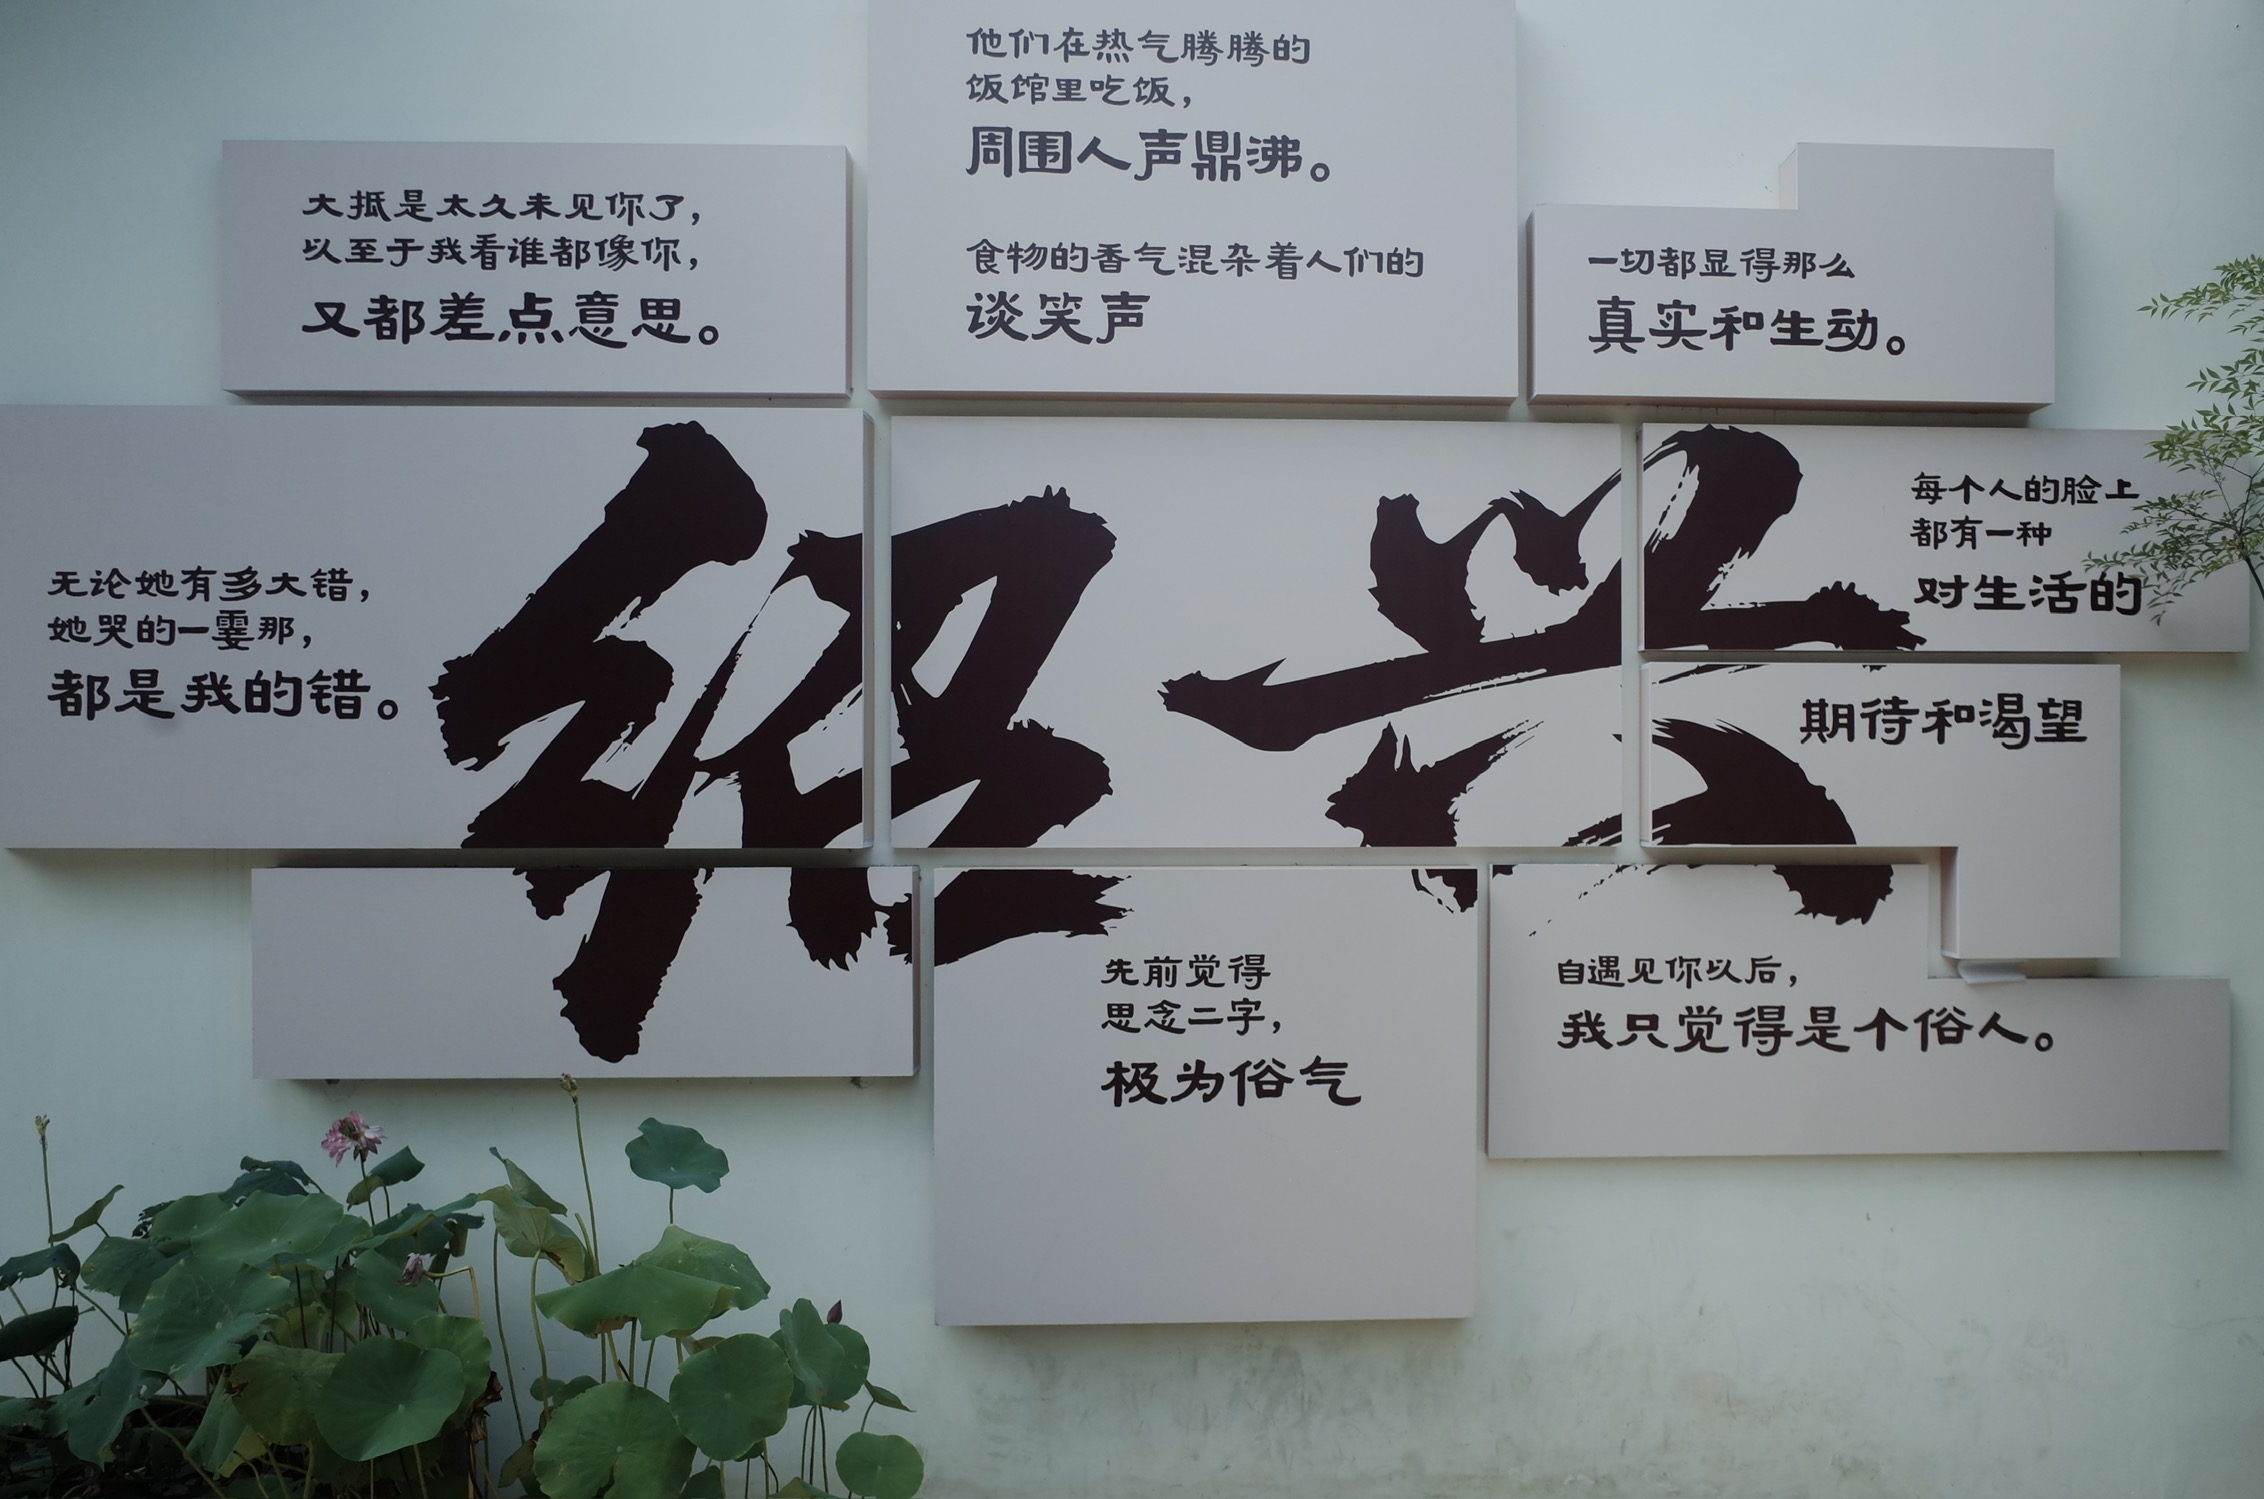 他们在热气腾腾的
饭馆里吃饭，
周围人声鼎沸。
食物的香气混杂着人们的
谈笑声
大抵是太久未见你了，
以至于我看谁都像你，
又都差点意思。
一切都显得那么
真实和生动。
无论她有多大错，
她哭的一霎那，
都是我的错。
绍兴
每个人的脸上
都有一种
对生活的
期待和渴望
先前觉得
思念二字，
极为俗气
自遇见你以后，
我只觉得是个俗人。